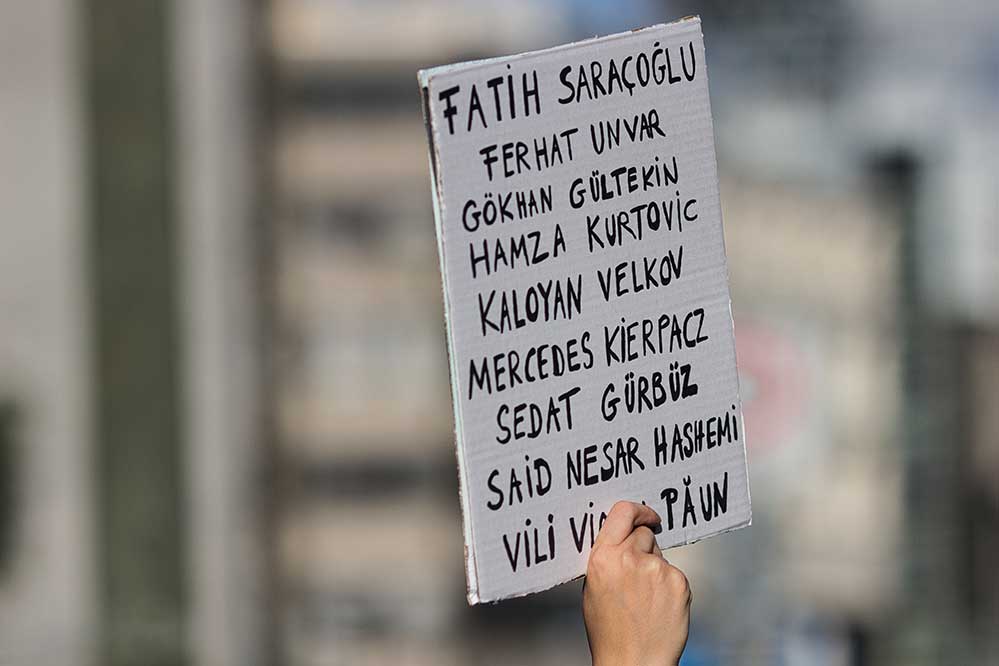 FATIH SARAÇOĞLU
FERHAT UNVAR
GÖKHAN GÜLTEKIN
HAMZA KURTOVIĆ
KALOYAN VELKOV
MERCEDES KIERPACZ
SEDAT GÜRBÜZ
SAID NESAR HASHEMI
VILI PĂUN